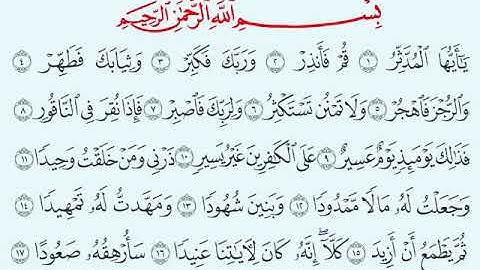 بِسْمِ ٱللَّهِ ٱلرَّحْمَٰنِ ٱلرَّحِيمِ
يَٰٓأَيُّهَا ٱلْمُدَّثِّرُ ١ قُمْ فَأَنذِرْ ٢ وَرَبَّكَ فَكَبِّرْ ٣ وَثِيَابَكَ فَطَهِّرْ ٤
وَٱلرُّجْزَ فَٱهْجُرْ ٥ وَلَا تَمْنُن تَسْتَكْثِرُ ٦ وَلِرَبِّكَ فَٱصْبِرْ ٧ فَإِذَا نُقِرَ فِى ٱلنَّاقُورِ ٨
فَذَٰلِكَ يَوْمَئِذٍ يَوْمٌ عَسِيرٌ ٩ عَلَى ٱلْكَٰفِرِينَ غَيْرُ يَسِيرٍ ١٠ ذَرْنِى وَمَنْ خَلَقْتُ وَحِيدًا ١١
وَجَعَلْتُ لَهُۥ مَالًا مَّمْدُودًا ١٢ وَبَنِينَ شُهُودًا ١٣ وَمَهَّدتُّ لَهُۥ تَمْهِيدًا ١٤
ثُمَّ يَطْمَعُ أَنْ أَزِيدَ ١٥ كَلَّآ ۖ إِنَّهُۥ كَانَ لِءَايَٰتِنَا عَنِيدًا ١٦ سَأُرْهِقُهُۥ صَعُودًا ١٧